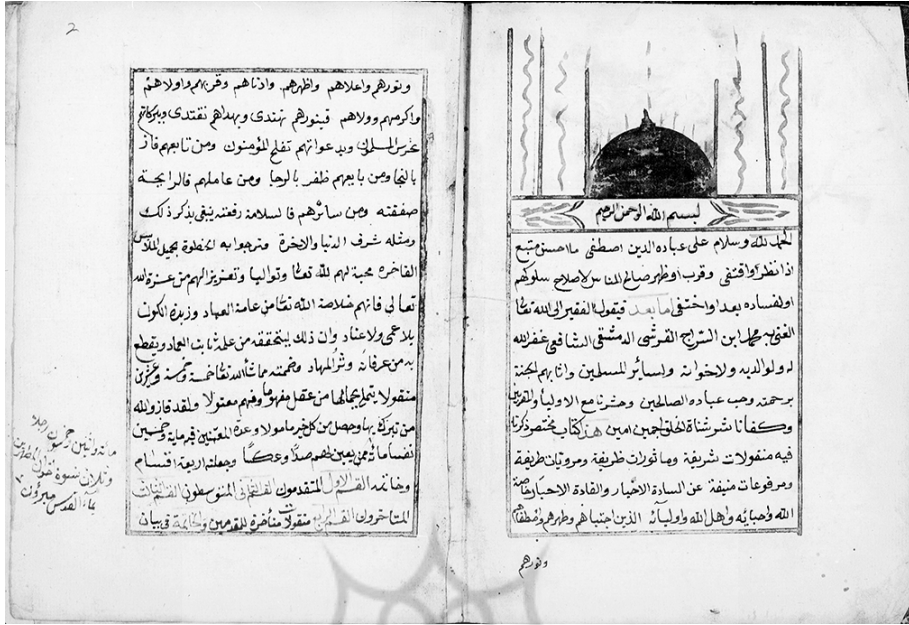 بسم الله الرحمن الرحيم
الحمد لله وسلام على عباده الذين اصطفى ما احسن متبع
اذا نظر او اقتفى وقرب او ظهر صالح للناس لاصلاح سلوكهم
او لفساده بعد او اختفى اما بعد فيقول الفقير الى الله تعا
الغنى به محمد ابن السراج القرشى الدمشقى الشافعى غفر الله
له ولوالديه ولاخوانه ولساير المسلمين واثابهم الجنة
برحمته وحب عباده الصالحين وحشرنا مع الاوليا والمقربين
وكفانا شر شناة الخلق اجمعين امين هذا كتاب مختصر ذكرنا
فيه منقولات شريفة وماثورات ظريفة ومرويات طريفة
ومرفوعات منيفة عن السادة الاخيار والقادة الاحبار خاصة
الله واحبائه واهل الله واوليائه الذين اجتباهم وطهرهم واصطفاهم
ونورهم
2
ونورهم واعلاهم واظهرهم وادناهم وقربهم واولاهم
واكرمهم وولاهم فبنورهم نهتدى وبهداهم نقتدى وببركاتهم
تحرس الملوك وبدعواتهم تفلح المؤمنون ومن تابعهم فاز
بالنجا ومن بايعهم ظفر بالرجا ومن عاملهم فالرابحة
صفقته ومن سائرهم فالسلامة رفعته ينبغى بذكر ذلك
ومثله شرف الدنيا والاخرة ونرجوا به الحظوة بجميل الملابس
الفاخره محبة لهم لله تعا وتواليا وتعزيزا لهم من عزة الله
تعالى فانهم خلاصة الله تعا من عامة العباد وزبدة الكون
بلا عمى ولا عناد وان ذلك يتحققه من علمه ثابت العماد ويقطع
به من عرفانه وثر المهاد وضمنته مما شا الله تعا خمسة وخمسة وعشرين
منقولا يتملى بجمالها من عقل مفهوما وفهم معقولا ولقد فاز والله
من تبرك بها وحصل من كل خير مامولا وعدة المعينين فيه ماية وخمسين
نفسا ممن يعين لهم صدا وعكسا وجعلته اربعة اقسام
وخاتمه القسم الاول المتقدمون القسم الثانى المتوسطون القسم الثالث
المتاخرون القسم الرابع منقولات متأخرة للمقدمين والخاتمة فى بيان
مائه واثنين وخمسون رجلا
وثلاث نسوة
بماء القدس مبرؤن